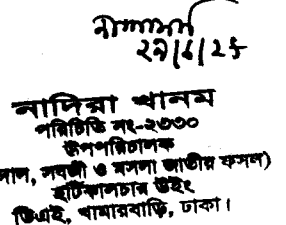 ২৯/৬/২৫
নাদিরা খানম
পরিচিতি নং-২৩৩০
উপপরিচালক
সবজী ও মসলা জাতীয় ফসল)
হর্টিকালচার উইং
ডিএই, খামারবাড়ি, ঢাকা।